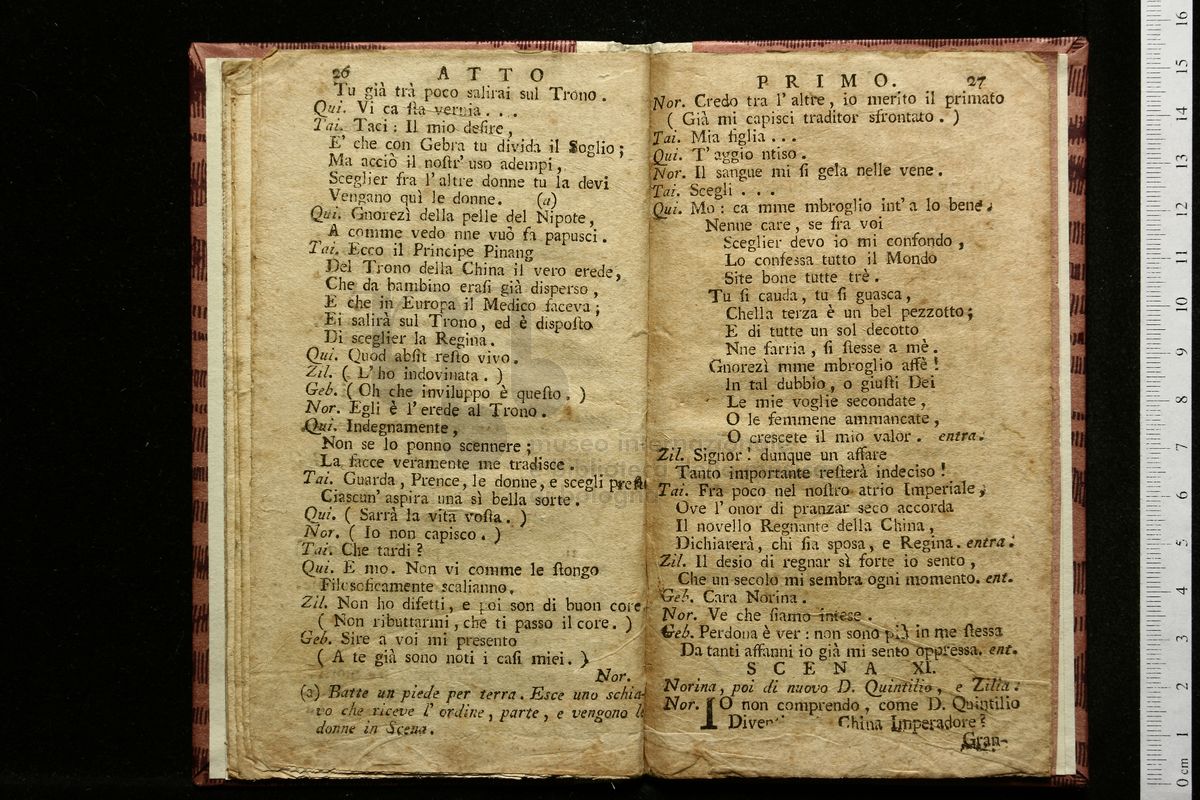 26 ATTO
Tu già trà poco salirai sul Trono.
Qui. Vi ca sta vernia . . .
Tai. Taci: Il mio desire,
E' che con Gebra tu divida il Soglio;
Ma acciò il nostr' uso adempi,
Sceglier fra l'altre donne tu la devi
Vengano quì le donne. (a)
Qui. Gnorezì della pelle del Nipote,
A comme vedo nne vuò fa papusci.
Tai. Ecco il Principe Pinang
Del Trono della China il vero erede,
Che da bambino erasi già disperso,
E che in Europa il Medico faceva;
Ei salirà sul Trono, ed è disposto
Di sceglier la Regina.
Qui. Quod absit resto vivo.
Zil. (L'ho indovinata.)
Geb. (Oh che inviluppo è questo.)
Nor. Egli è l'erede al Trono.
Qui. Indegnamente,
Non se lo ponno scennere;
La facce veramente me tradisce.
Tai. Guarda, Prence, le donne, e scegli presto
Ciascun' aspira una sì bella sorte.
Qui. (Sarrà la vita vosta.)
Nor. (Io non capisco.)
Tai. Che tardi?
Qui. E mo. Non vi comme le stongo
Filosoficamente scalianno.
Zil. Non ho difetti, e poi son di buon core
(Non ributtarmi, che ti passo il core.)
Geb. Sire a voi mi presento
(A te già sono noti i casi miei.)
Nor.
(a) Batte un piede per terra. Esce uno schia-
vo che riceve l'ordine, parte, e vengono le
donne in Scena.
PRIMO. 27
Nor. Credo tra l'altre, io merito il primato
(Già mi capisci traditor sfrontato.)
Tai. Mia figlia . . .
Qui. T'aggio ntiso.
Nor. Il sangue mi si gela nelle vene.
Tai. Scegli . . .
Qui. Mo: ca mme mbroglio int'a lo bene.
Nenne care, se fra voi
Sceglier devo io mi confondo,
Lo confessa tutto il Mondo
Site bone tutte trè.
Tu si cauda, tu si guasca,
Chella terza è un bel pezzotto;
E di tutte un sol decotto
Nne farria, si stesse a mè.
Gnorezì mme mbroglio affè!
In tal dubbio, o giusti Dei
Le mie voglie secondate,
O le femmene ammancate,
O crescete il mio valor. entra.
Zil. Signor! dunque un affare
Tanto importante resterà indeciso!
Tai. Fra poco nel nostro atrio Imperiale,
Ove l'onor di pranzar seco accorda
Il novello Regnante della China,
Dichiarerà, chi sia sposa, e Regina. entra.
Zil. Il desio di regnar sì forte io sento,
Che un secolo mi sembra ogni momento. ent.
Geb. Cara Norina.
Nor. Ve che siamo intese.
Geb. Perdona è ver: non sono più in me stessa
Da tanti affanni io già mi sento oppressa. ent.
SCENA XI.
Norina, poi di nuovo D. Quintilio, e Zilia.
Nor. IO non comprendo, come D. Quintilio
China Imperadore?
Gran-